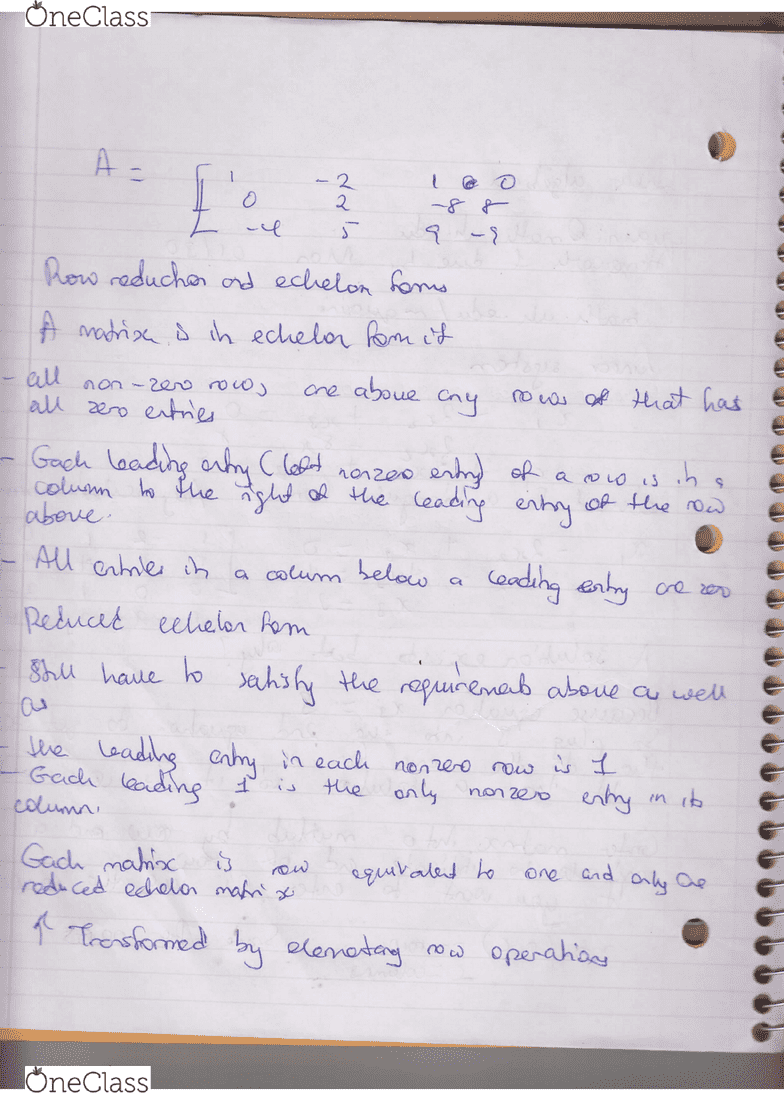 OneClass
A = [ 1 -2 1 0 0
0 2 -8 8
-4 5 9 -9
Row reduction and echelon forms
A matrix is in echelon form if
- all non-zero rows are above any rows of that has
all zero entries
- Each leading entry (left nonzero entry) of a row is in a
column to the right of the leading entry of the row
above.
- All entries in a column below a leading entry are zero
Reduced echelon form
- Still have to satisfy the requirements above as well
as
- the leading entry in each nonzero row is 1
- Each leading 1 is the only nonzero entry in its
column.
Each matrix is row equivalent to one and only one
reduced echelon matrix
↑ Transformed by elementary row operations
OneClass